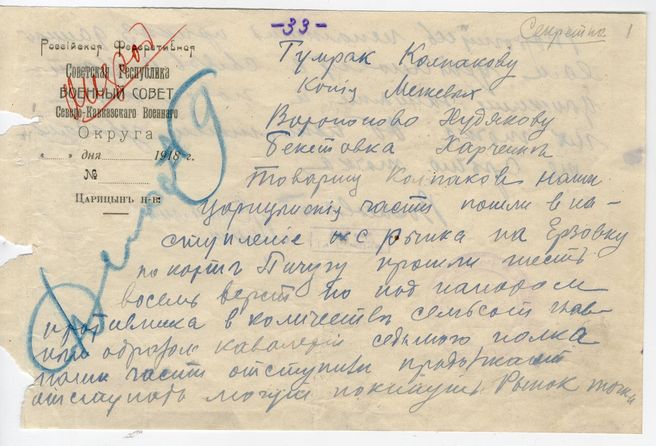 -33-
Секретно 1
Россійская Федеративная
Советская Республика
ВОЕННЫЙ СОВЕТ
Северо-Кавказского Военнаго
Округа
" " дня 1918 г.
№
Царицын н-в.
Гумрак Колпакову
Копия Межевых
Воропоново Худякову
Бекетовка Харченко
Товарищ Колпаков наши
части пошли в на
ступление с Рынка на Ерзовку
по карте Пичугу прошли шесть
восемь верст но под напором
противника в количестве семьсот глав
ным образом кавалерии седьмого полка
наши части отступили продолжают
отступать могут покинуть Рынок точка